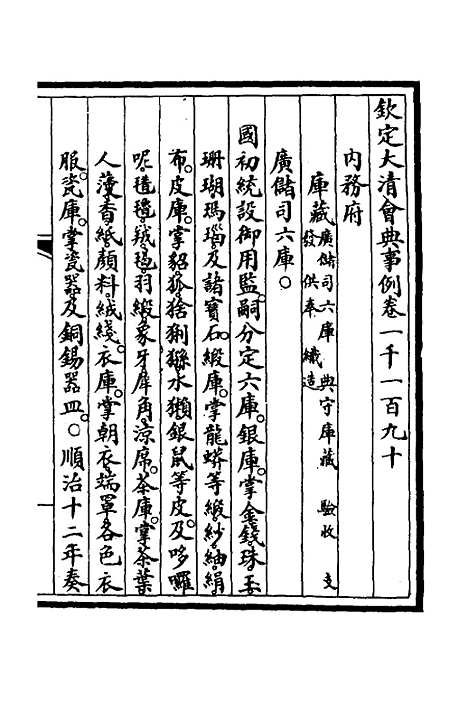 欽定大清會典事例卷一千一百九十
內務府
庫藏廣儲司六庫 典守庫藏 驗收 支
發 供奉 織造
廣儲司六庫○
國初統設御用監嗣分定六庫銀庫掌金錢珠玉
珊瑚瑪瑙及諸寶石緞庫掌龍蟒等緞紗紬絹
布皮庫掌貂狐猞猁猻水獺銀鼠等皮及哆囉
呢氆氌羢毯羽緞象牙犀角涼席茶庫掌茶葉
人薓香紙顏料絨綫衣庫掌朝衣端罩各色衣
服瓷庫掌瓷器及銅錫器皿○順治十二年奏